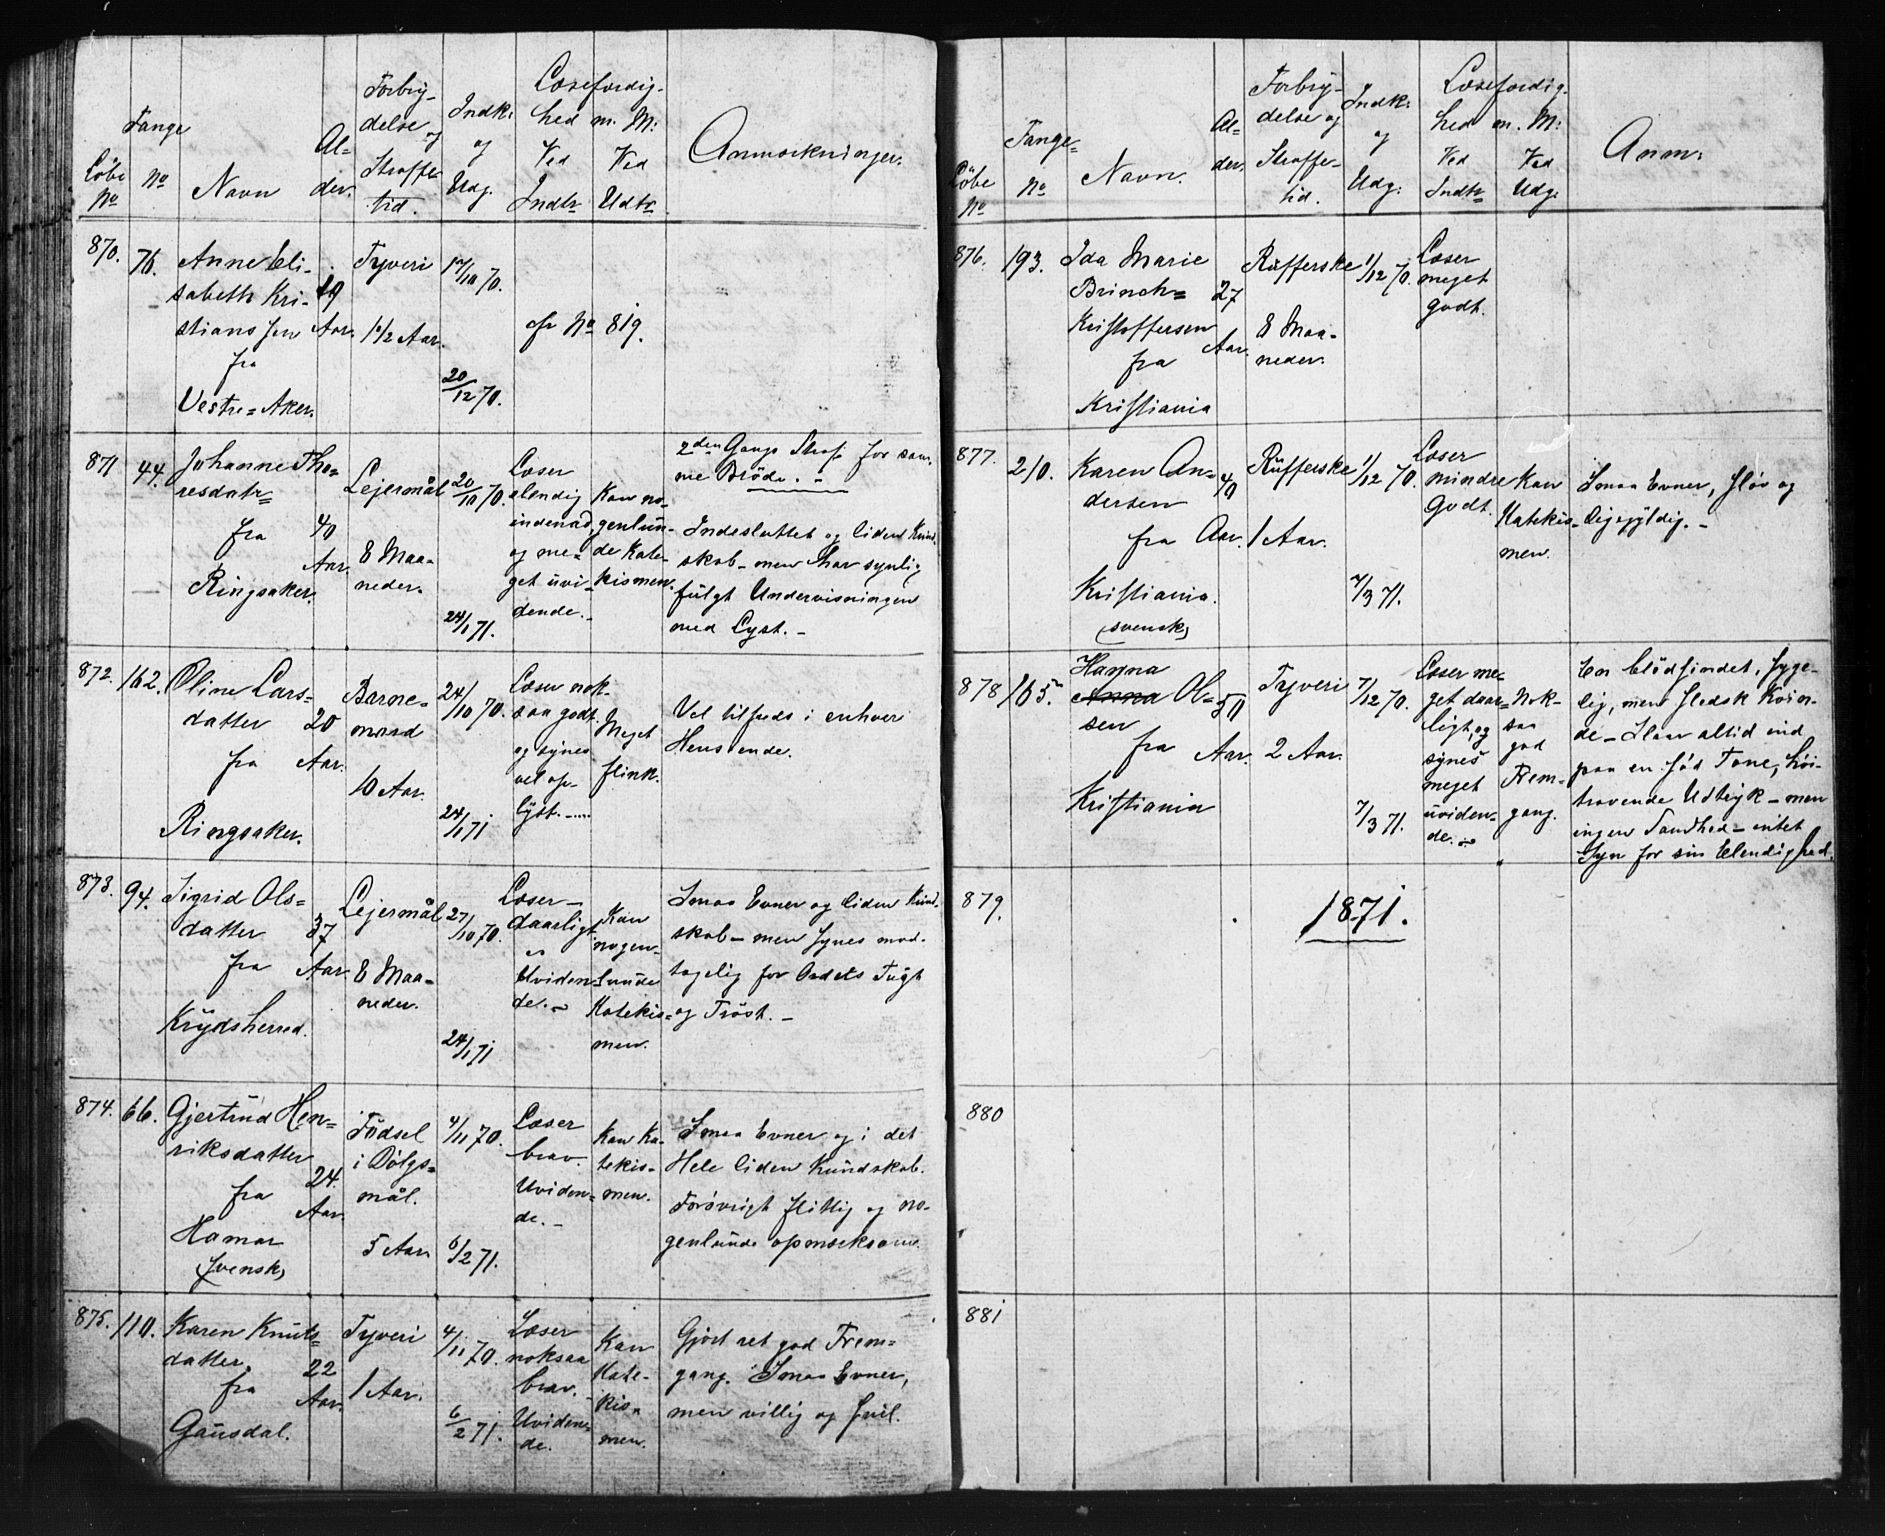 Löbe No
Fange No
Navn
Al-
der.
Forbry-
delse og
Straffe-
tid.
Indk:
og
Udg.
Læsefærdig-
hed m. M:
Ved Indtr
Ved Udtr
Anmærkninger.
870.
76.
Anne Eli-
sabeth Kri-
stiansen
fra
Vestre=Aker.
19
Aar.
Tyveri
1 1/2 Aar.
17/10 70.
20/12 70.
cfr No 819.
871
44.
Johanne Tho=
resdatr
fra
Ringsaker.
40
Aar.
Lejermål
8 Maa-
neder.
20/10 70.
24/1 71.
Læser
elendig
indenad,
og me-
get uvi-
dende.-
Kan no-
genlun-
de Kate-
kismen.
2den Gangs Straf for sam-
me Bröde.-
Indesluttet og liden Kund-
skab - men har synlig
fulgt Undervisningen
med Lyst.-
872.
162.
Oline Lars-
datter
fra
Ringsaker.
20
Aar.
Barne-
mord
10 Aar.
24/10 70.
24/1 71
Læser nok-
saa godt
og synes
vel op-
lyst.-
Meget
flink.
Vel tilfreds i enhver
Henseende.
873.
94.
Sigrid Ols=
datter
fra
Krydsherred.
37
Aar.
Lejermål
8 Maa=
neder.
27/10 70.
24/1 71
Læser-
daarligt
Uviden-
de.-
Kan
nogen-
lunde
Katekis=
men.
Smaa Evner og liden Kund-
skab - men synes mod-
tagelig for Ordets Tugt
og Tröst.-
874.
66.
Gjertrud Hen=
riksdatter
fra
Hamar
(svensk)
24.
Aar.
Födsel
i Dölgs=
mål.
5 Aar.
4/11 70.
6/2 71.
Læser
brav.
Uviden=
de.-
Kan Ka-
tekis-
men.
Smaa Evner og i det
Hele liden Kundskab.
Forövrigt flittig og no-
genlunde opmærksom.
875.
110.
Karen Knuts=
datter.
fra
Gausdal.
22
Aar.
Tyveri
1 Aar.
4/11 70.
6/2 71.
Læser
noksaa
brav.-
Uviden-
de.
Kan
Kate-
kis-
men.
Gjort ret god Frem=
gang. Smaa Evner,
men villig og snil.
Löbe No
Fange=
No
Navn.
Al=
der.
Forbry-
delse og
Straffe-
tid.
Indk:
og
Udg:
Læsefærdig-
hed m. M:
Ved Indtr
Ved Udg.
Anm:
876.
193.
Ida Marie
Brinch=
Kristoffersen
fra
Kristiania
27
Aar.
Rufferske
8 Maa-
neder.
1/12 70.
Læser
meget
godt.
877.
210.
Karen An-
dersen
fra
Kristiania.
(svensk)
40
Aar.
Rufferske
1 Aar.
1/12 70.
7/3 71.
Læser
mindre
godt.
Kan
Katekis-
men.
Smaa Evner, slöv og
ligegyldig.-
878
165.
Hanna
Anna Ol=
sen
fra
Kristiania
50
Aar.
Tyveri
2 Aar.
7/12 70.
7/3 71.
Læser me-
get daar-
ligt, og
synes
meget
uviden-
de.-
Nok-
saa
god
Frem-
gang.
En blödsindet, syge-
lig, men fledsk Kvin-
de - Slaar altid ind
paa en söd Tone, höi-
travende Udtryk - men
ingen Sandhed - intet
Syn for sin Elendighed.
879.
1871.
880
881